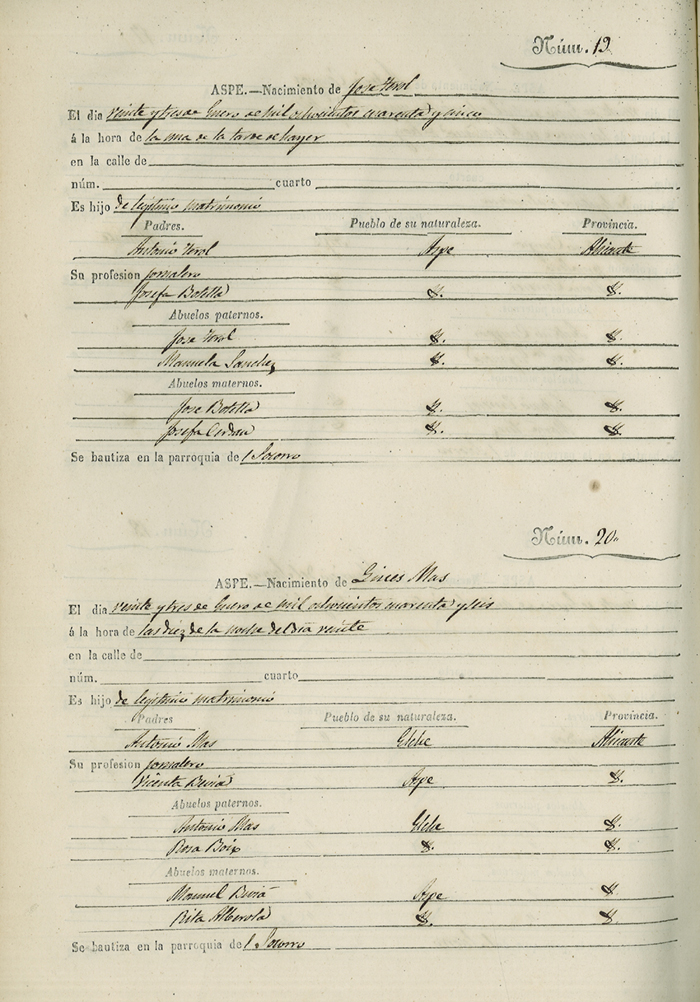 Núm. 19
ASPE.—Nacimiento de Jose Terol
El dia veinte y tres de Enero de mil ochocientos cuarenta y cinco
á la hora de la una de la tarde de hayer
en la calle de
núm. cuarto
Es hijo de legitimo matrimonio
Padres. Pueblo de su naturaleza. Provincia.
Antonio Terol Aspe Alicante
Su profesion jornalero
Josefa Botella Y. Y.
Abuelos paternos.
Jose Terol Y. Y.
Manuela Sanchez Y. Y.
Abuelos maternos.
Jose Botella Y. Y.
Josefa Cerdan Y. Y.
Se bautiza en la parroquia del Socorro
Núm. 20
ASPE.—Nacimiento de Gines Mas
El dia veinte y tres de Enero de mil ochocientos cuarenta y seis
á la hora de las diez de la noche del dia veinte
en la calle de
núm. cuarto
Es hijo de legitimo matrimonio
Padres Pueblo de su naturaleza. Provincia.
Antonio Mas Elche Alicante
Su profesion jornalero
Vicenta Aspe Y.
Abuelos paternos.
Antonio Mas Elche Y.
Rosa Boix Y. Y.
Abuelos maternos.
Manuel Aspe Y.
Rita Alberola Y. Y.
Se bautiza en la parroquia del Socorro